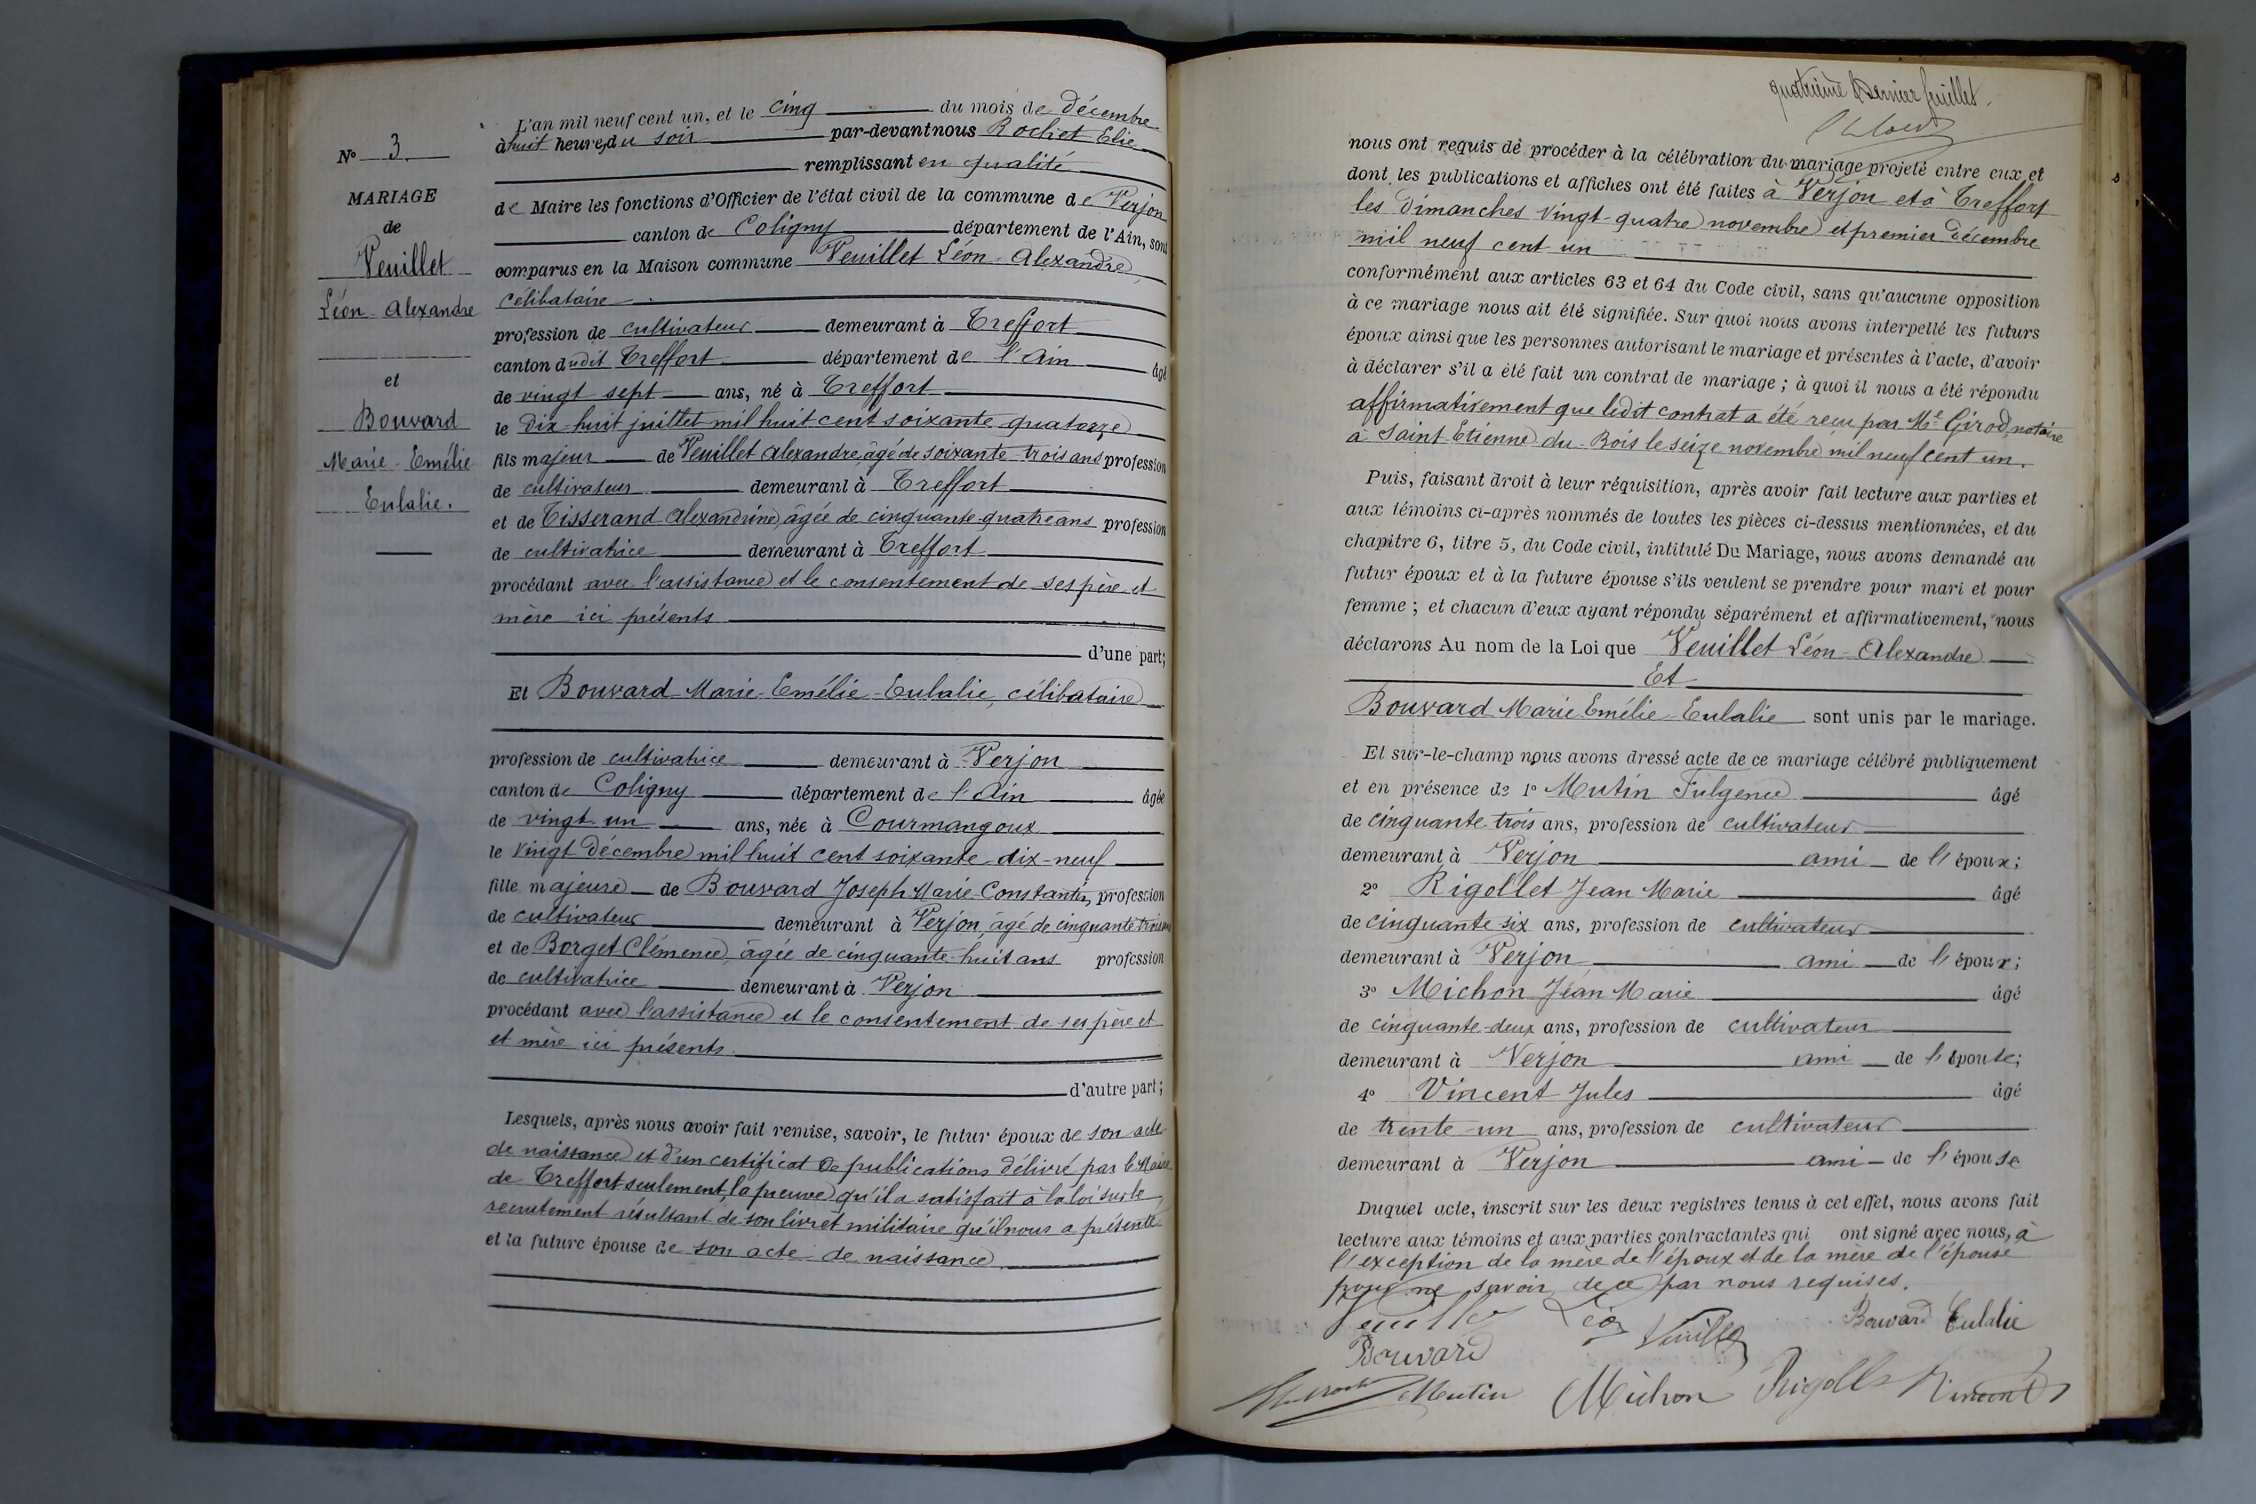 N° 3
MARIAGE
de
Veuillet
Léon-Alexandre
et
Bouvard
Marie-Emélie
Eulalie.
L'an mil neuf cent un, et le cinq du mois de décembre
à huit heures du soir par-devant nous Rochet Elie
remplissant en qualité
de Maire les fonctions d'Officier de l'état civil de la commune de Verjon
canton de Coligny département de l'Ain, sont
comparus en la Maison commune Veuillet Léon-Alexandre,
célibataire
profession de cultivateur demeurant à Treffort
canton dudit Treffort département de l'Ain âgé
de vingt sept ans, né à Treffort
le dix-huit juillet mil huit cent soixante quatorze
fils majeur de Veuillet Alexandre, âgé de soixante-trois ans profession
de cultivateur demeurant à Treffort
et de Tisserand Alexandrine, âgée de cinquante-quatre ans profession
de cultivatrice demeurant à Treffort
procédant avec l'assistance et le consentement de ses père et
mère ici présents
d'une part;
Et Bouvard Marie-Emélie-Eulalie, célibataire
profession de cultivatrice demeurant à Verjon
canton de Coligny département de l'Ain âgée
de vingt un ans, née à Courmangoux
le vingt décembre mil huit cent soixante-dix-neuf
fille majeure de Bouvard Joseph Marie-Constantin, profession
de cultivateur demeurant à Verjon, âgé de cinquante-trois ans
et de Borget Clémence, âgée de cinquante-huit ans profession
de cultivatrice demeurant à Verjon
procédant avec l'assistance et le consentement de ses père et
et mère ici présents.
d'autre part;
Lesquels, après nous avoir fait remise, savoir, le futur époux de son acte
de naissance et d'un certificat de publications délivré par le Maire
de Treffort seulement, la preuve qu'il a satisfait à la loi sur le
recrutement résultant de son livret militaire qu'il nous a présenté
et la future épouse de son acte de naissance.
quatrième & dernier feuillet.
nous ont requis de procéder à la célébration du mariage projeté entre eux et
dont les publications et affiches ont été faites à Verjon et à Treffort
les dimanches vingt-quatre novembre et premier décembre
mil neuf cent un
conformément aux articles 63 et 64 du Code civil, sans qu'aucune opposition
à ce mariage nous ait été signifiée. Sur quoi nous avons interpellé les futurs
époux ainsi que les personnes autorisant le mariage et présentes à l'acte, d'avoir
à déclarer s'il a été fait un contrat de mariage ; à quoi il nous a été répondu
affirmativement que ledit contrat a été reçu par Me Girod, notaire
à Saint-Etienne-du-Bois le seize novembre mil neuf cent un.
Puis, faisant droit à leur réquisition, après avoir fait lecture aux parties et
aux témoins ci-après nommés de toutes les pièces ci-dessus mentionnées, et du
chapitre 6, titre 5, du Code civil, intitulé Du Mariage, nous avons demandé au
futur époux et à la future épouse s'ils veulent se prendre pour mari et pour
femme ; et chacun d'eux ayant répondu séparément et affirmativement, nous
déclarons Au nom de la Loi que Veuillet Léon-Alexandre
Et
Bouvard Marie Emélie-Eulalie sont unis par le mariage.
Et sur-le-champ nous avons dressé acte de ce mariage célébré publiquement
et en présence de 1° Mutin Fulgence âgé
de cinquante trois ans, profession de cultivateur
demeurant à Verjon ami de l'époux;
2° Rigollet Jean Marie âgé
de cinquante six ans, profession de cultivateur
demeurant à Verjon ami de l'époux;
3° Michon Jean Marie âgé
de cinquante-deux ans, profession de cultivateur
demeurant à Verjon ami de l'épouse;
4° Vincent Jules âgé
de trente-un ans, profession de cultivateur
demeurant à Verjon ami de l'épouse
Duquel acte, inscrit sur les deux registres tenus à cet effet, nous avons fait
lecture aux témoins et aux parties contractantes qui ont signé avec nous, à
l'exception de la mère de l'époux et de la mère de l'épouse
pour ne savoir, de ce par nous requises.
Veuillet Léon Veuillet Bouvard Eulalie
Bouvard
Mutin Michon Rigollet Vincent